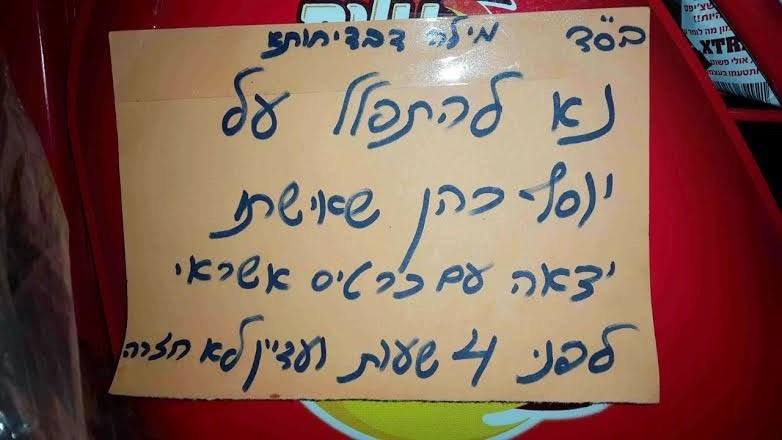 בס"ד מילה דבדיחותא
נא להתפלל על
יוסף כהן שאישתו
יצאה עם כרטיס אשראי
לפני 4 שעות ועדיין לא חזרה
XTR